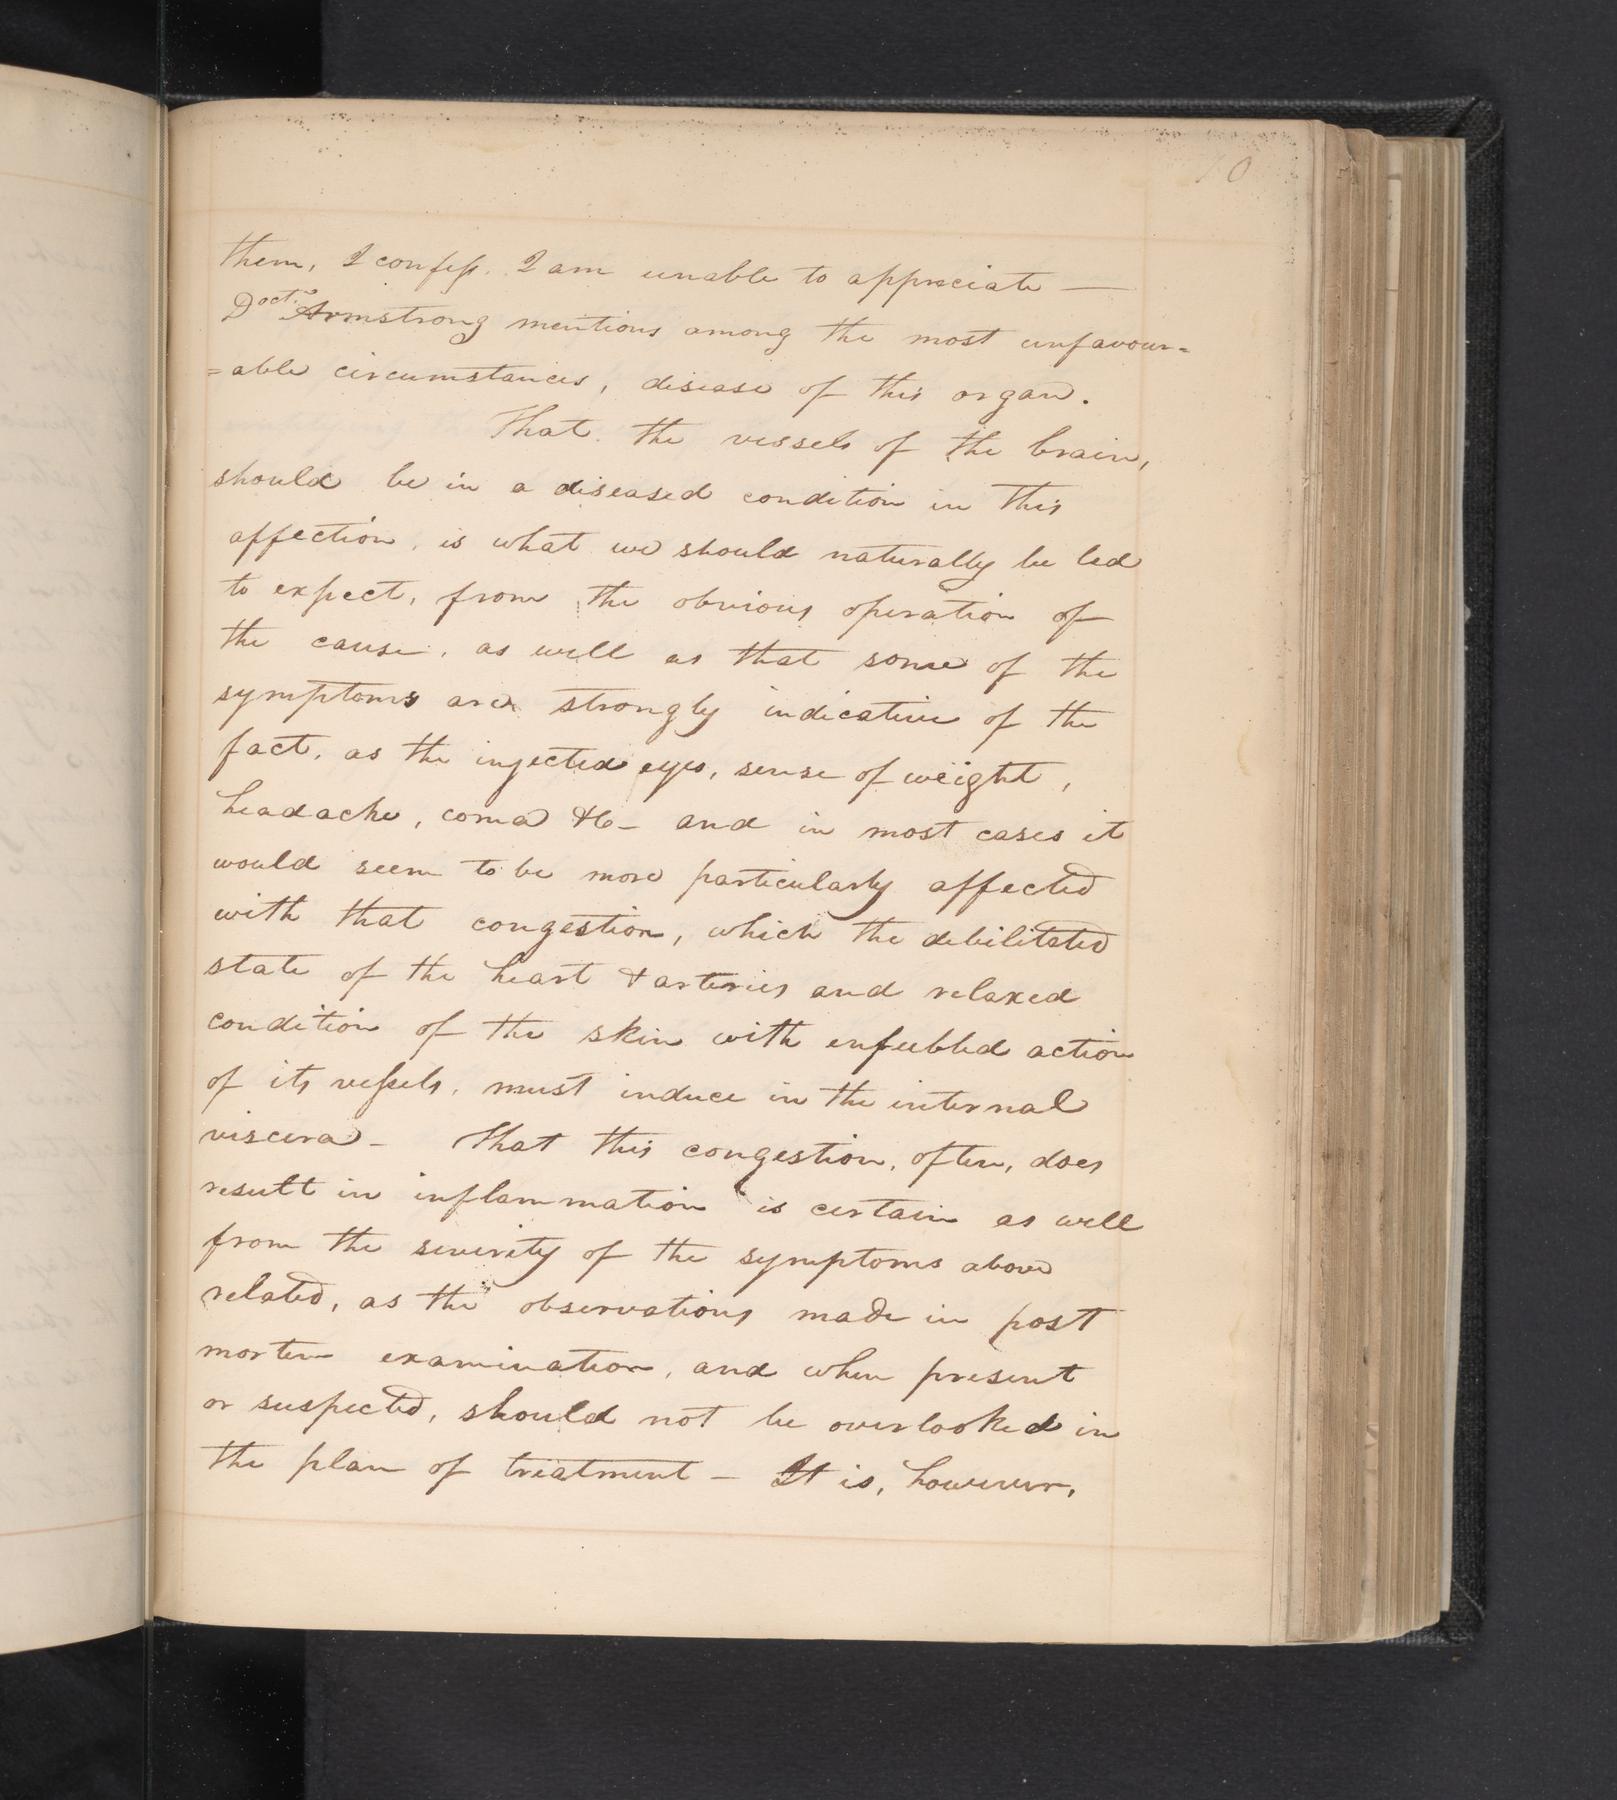 10
them, I confess. I am unable to appreciate —
Doct. Armstrong mentions among the most unfavour=
=able circumstances, disease of this organ.
That the vessels of the brain,
should be in a diseased condition in this
affection, is what we should naturally be led
to expect, from the obvious operation of
the cause, as well as that some of the
symptoms are strongly indicative of the
fact, as the injected eyes, sense of weight,
headache, coma &c - and in most cases it
would seem to be more particularly affected
with that congestion, which the debilitated
state of the heart & arteries and relaxed
condition of the skin with enfeebled action
of its vessels, must induce in the internal
viscera - That this congestion, often, does
result in inflammation is certain as well
from the severity of the symptoms above
related, as the observations made in post
mortem examination, and when present
or suspected, should not be overlooked in
the plan of treatment — It is, however,